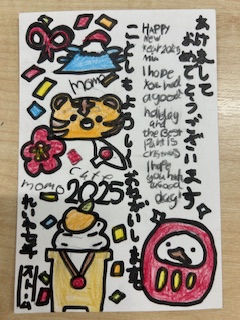 あけまして
おめでとうございます
HAPPY
New
Year 2025
I hope
you had
a good
holiday
and the
Best
Part is
crismas
I hope
you have
a good
day!
ことしもよろしくおねがいします。
momo
cafe
momo
2025
れいわ七年